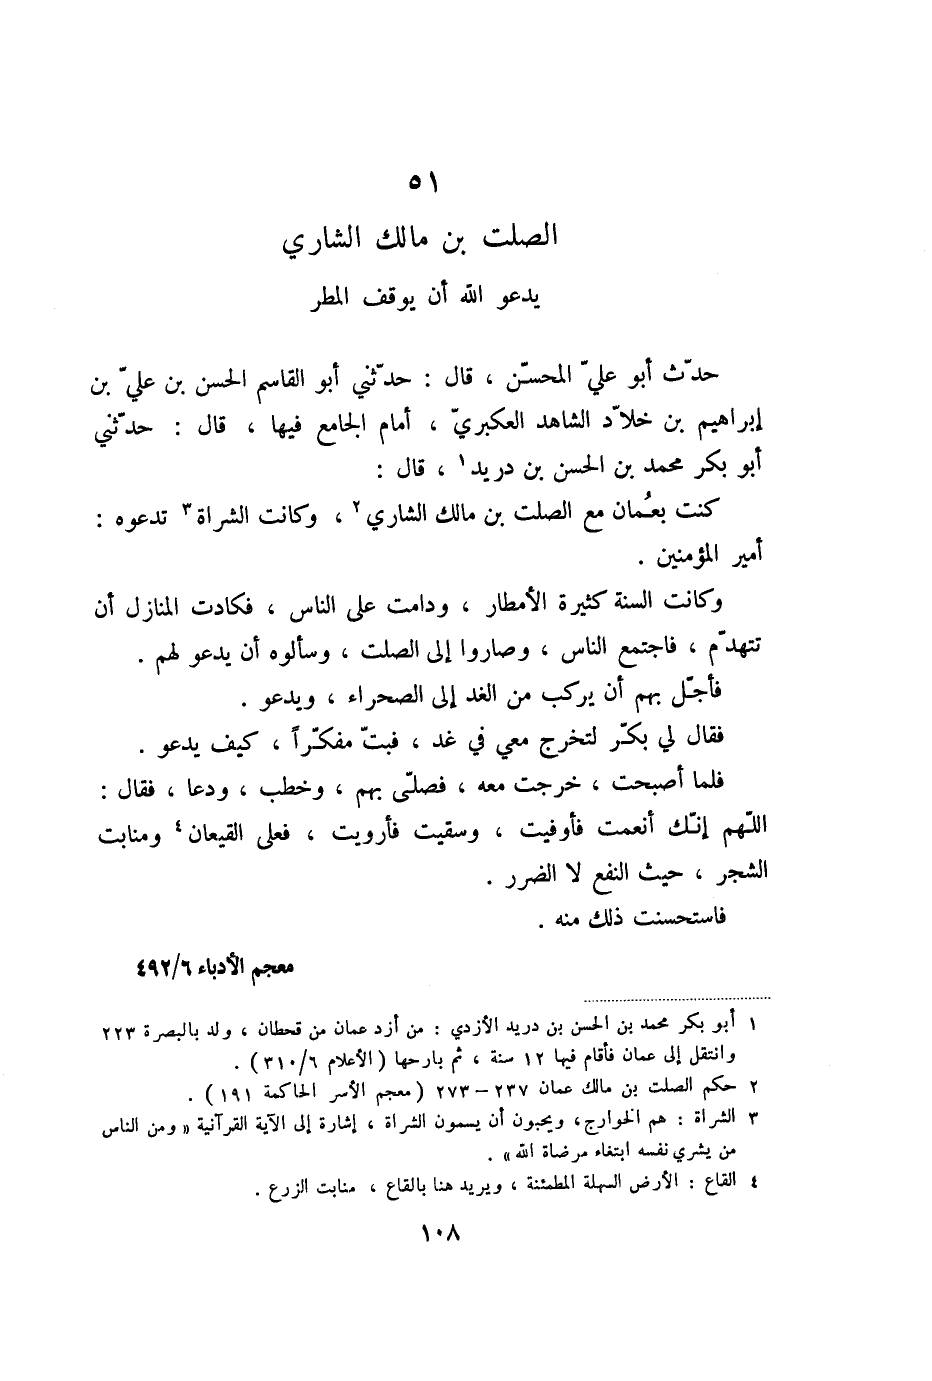 ٥١
الصلت بن مالك الشاري
يدعو الله أن يوقف المطر
حدّث أبو عليّ المحسّن ، قال : حدّثني أبو القاسم الحسن بن عليّ بن
إبراهيم بن خلاّد الشاهد العكبريّ ، أمام الجامع فيها ، قال : حدّثني
أبو بكر محمد بن الحسن بن دريد ١ ، قال :
كنت بعُمان مع الصلت بن مالك الشاري ٢ ، وكانت الشراة ٣ تدعوه :
أمير المؤمنين .
وكانت السنة كثيرة الأمطار ، ودامت على الناس ، فكادت المنازل أن
تتهدّم ، فاجتمع الناس ، وصاروا إلى الصلت ، وسألوه أن يدعو لهم .
فأجّل بهم أن يركب من الغد إلى الصحراء ، ويدعو .
فقال لي بكّر لتخرج معي في غد ، فبتّ مفكّراً ، كيف يدعو .
فلما أصبحت ، خرجت معه ، فصلّى بهم ، وخطب ، ودعا ، فقال :
اللّهم إنّك أنعمت فأوفيت ، وسقيت فأرويت ، فعلى القيعان ٤ ومنابت
الشجر ، حيث النفع لا الضرر .
فاستحسنت ذلك منه .
معجم الأدباء ٤٩٢/٦
١ أبو بكر محمد بن الحسن بن دريد الأزدي : من أزد عمان من قحطان ، ولد بالبصرة ٢٢٣
وانتقل إلى عمان فأقام فيها ١٢ سنة ، ثم بارحها ( الأعلام ٣١٠/٦ ) .
٢ حكم الصلت بن مالك عمان ٢٣٧ – ٢٧٣ ( معجم الأسر الحاكمة ١٩١ ) .
٣ الشراة : هم الخوارج، ويحبون أن يسمون الشراة ، إشارة إلى الآية القرآنية « ومن الناس
من يشري نفسه ابتغاء مرضاة الله » .
٤ القاع : الأرض السهلة المطمئنة ، ويريد هنا بالقاع ، منابت الزرع .
١٠٨